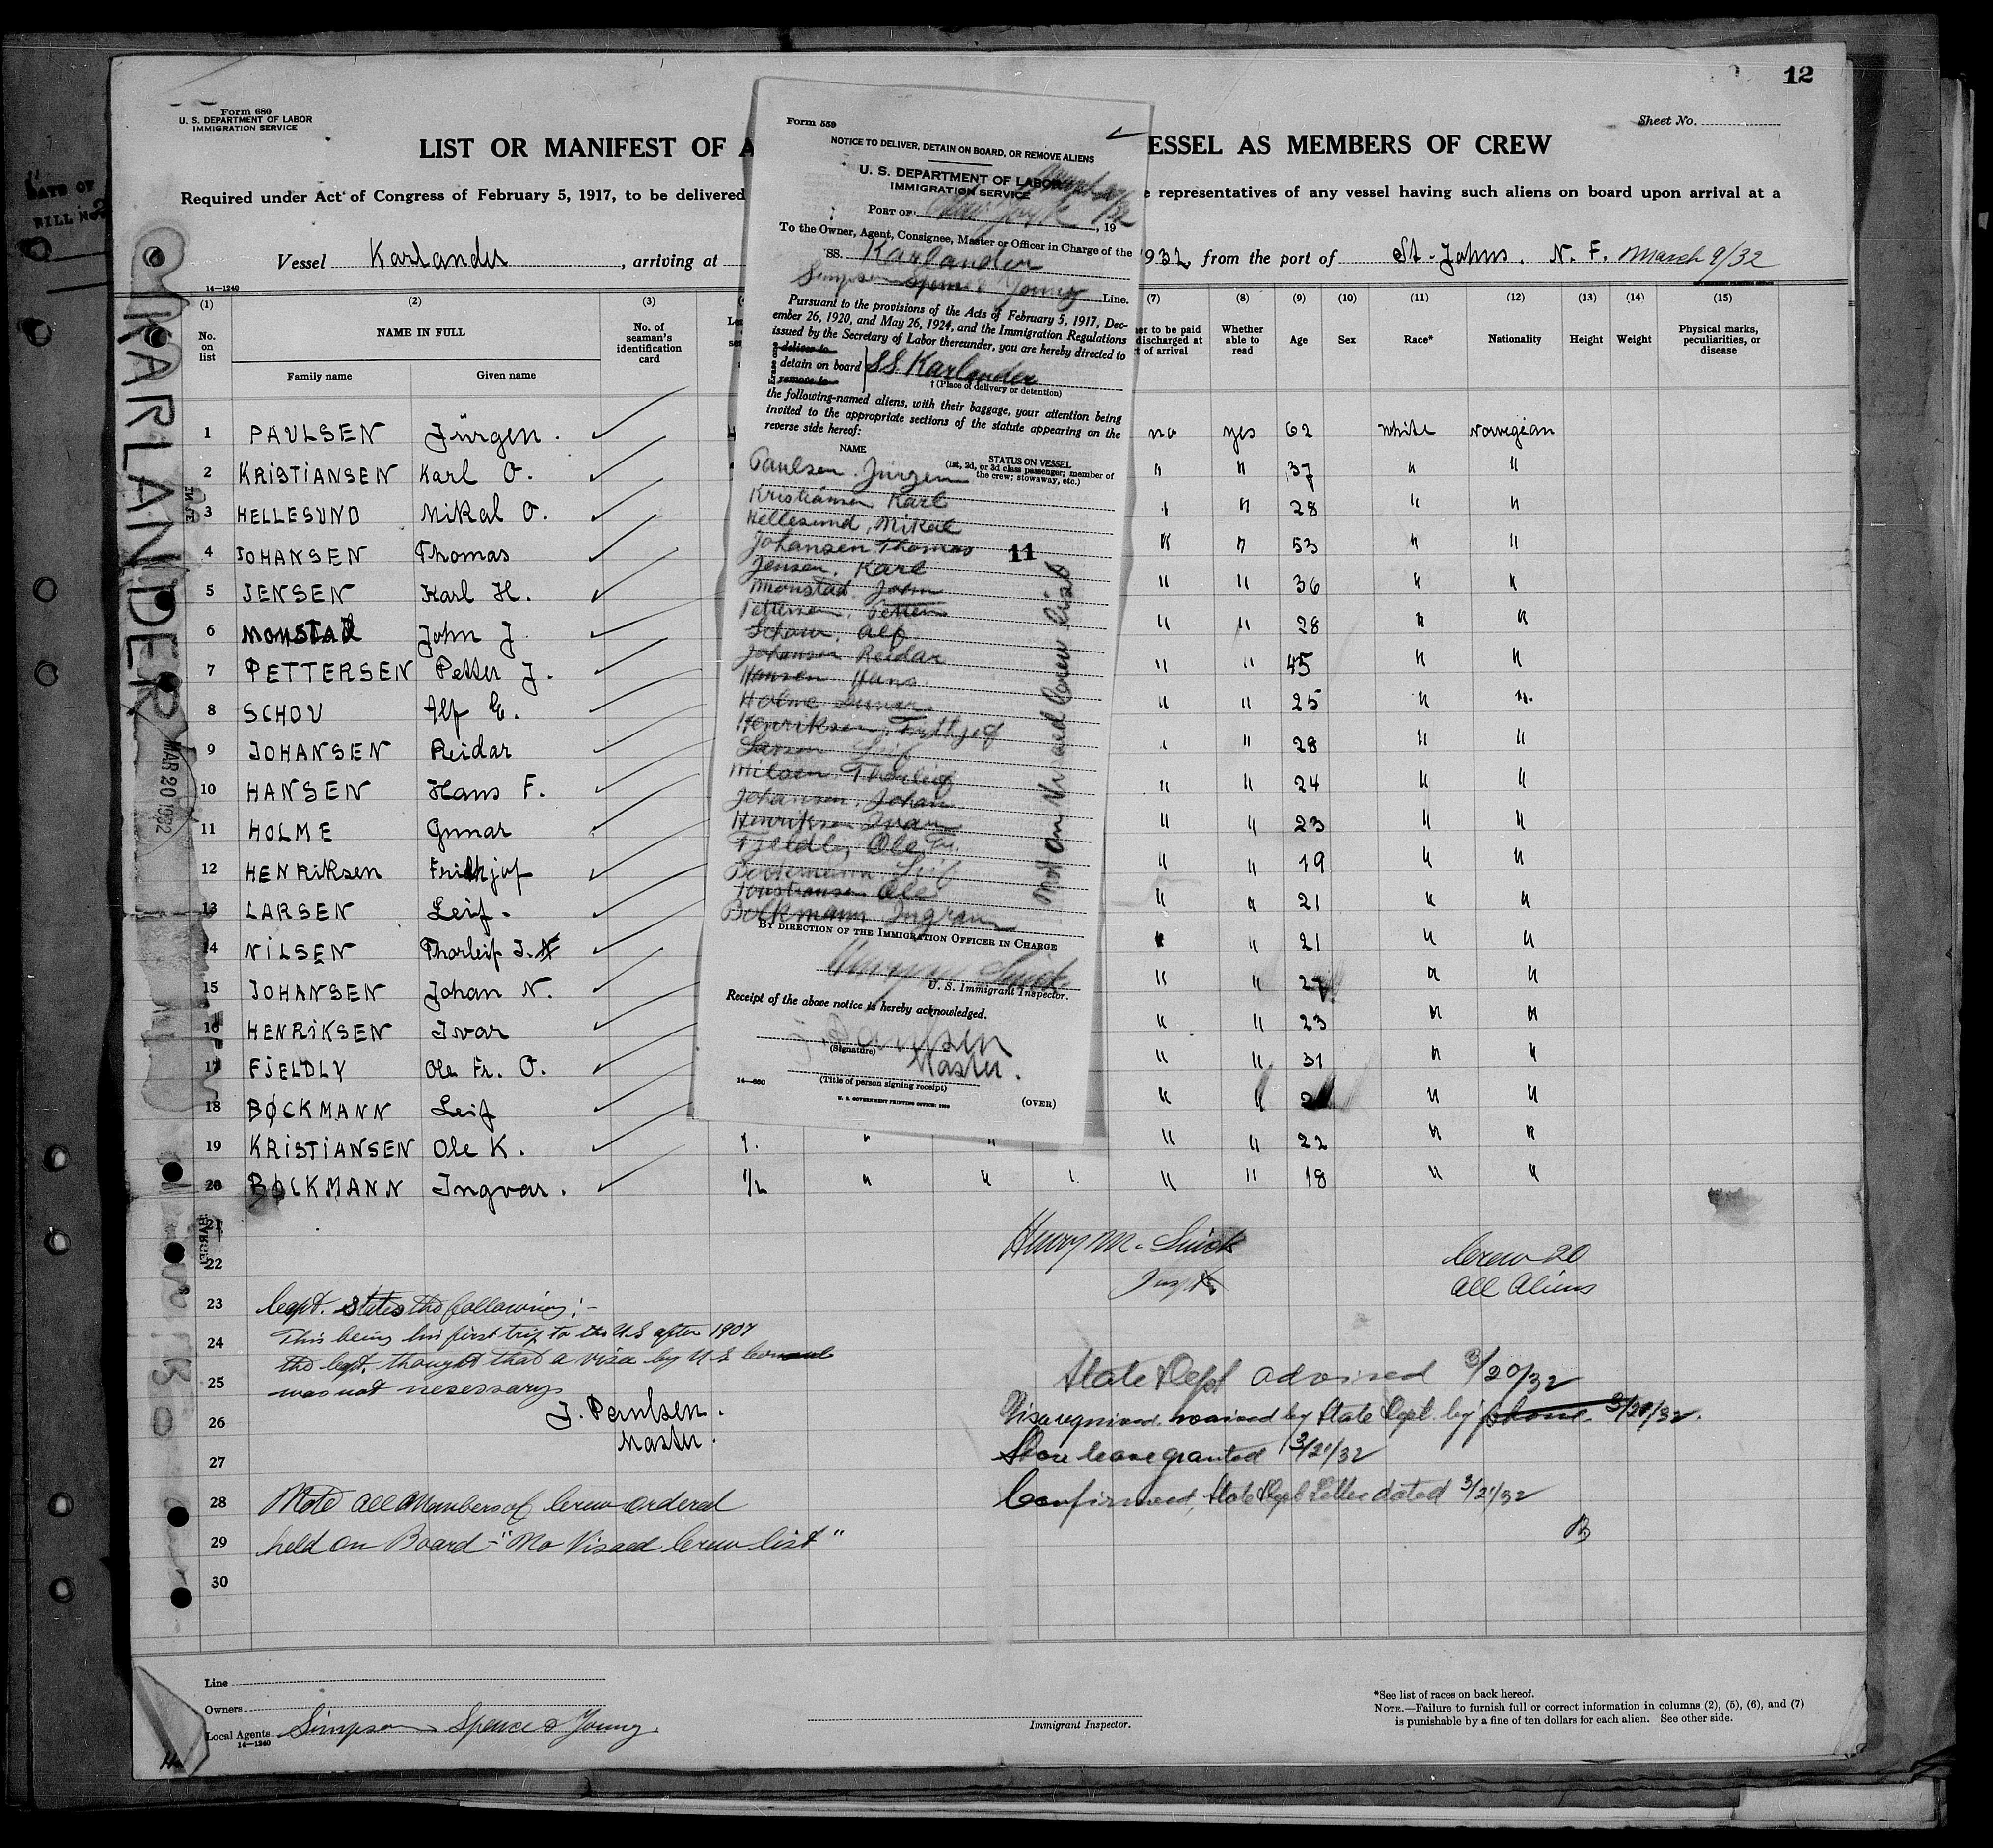 12
Form 680
U. S. DEPARTMENT OF LABOR
IMMIGRATION SERVICE
Sheet No.
LIST OR MANIFEST OF A
ESSEL AS MEMBERS OF CREW
Required under Act of Congress of February 5, 1917, to be delivered
e representatives of any vessel having such aliens on board upon arrival at a
Vessel Karlander, arriving at
1932, from the port of St. Johns. N. F. March 9/32
14—1240
(1) (2) (3) (7) (8) (9) (10) (11) (12) (13) (14) (15)
No. on list
NAME IN FULL
Family name Given name
No. of seaman's identification card
er to be paid discharged at t of arrival
Whether able to read
Age
Sex
Race*
Nationality
Height
Weight
Physical marks, peculiarities, or disease
1 PAULSEN Jürgen. no yes 62 White Norwegian
2 KRISTIANSEN Karl O. " " 37 " "
3 HELLESUND Mikal O. " " 28 " "
4 JOHANSEN Thomas " " 53 " "
5 JENSEN Karl H. " " 36 " "
6 MONSTAD John J " " 28 " "
7 PETTERSEN Petter J. " " 45 " "
8 SCHOU Alf E. " " 25 " "
9 JOHANSEN Reidar " " 28 " "
10 HANSEN Hans F. " " 24 " "
11 HOLME Gunar " " 23 " "
12 HENRIKSEN Frithjof " " 19 " "
13 LARSEN Leif. " " 21 " "
14 NILSEN Thorleif J. " " 21 " "
15 JOHANSEN Johan N. " " 27 " "
16 HENRIKSEN Ivar " " 23 " "
17 FJELDLY Ole Fr. O. " " 31 " "
18 BØCKMANN Leif " " " "
19 KRISTIANSEN Ole K. 1. " " " " 22 " "
20 BØCKMANN Ingvar. 1/2 " " 1. " " 18 " "
21
22
23
24
25
26
27
28
29
30
Henry M. Quick
Insp
Crew 20
All Aliens
Capt. States the following:-
This being his first trip to the U.S after 1907
the Capt. thought that a visa by U.S Consul
was not nesessary
J. Paulsen.
Master.
Note all Members of Crew ordered
held on Board - "No Visaed Crew list"
State Dept advised 3/20/32
Visa required waived by State Dept. by phone 3/20/32.
Shore leave granted 3/21/32
Confirmed, State Dept Letter dated 3/21/32
Line
Owners
Local Agents Simpson Spence & Young.
14—1240
Immigrant Inspector.
*See list of races on back hereof.
NOTE.—Failure to furnish full or correct information in columns (2), (5), (6), and (7)
is punishable by a fine of ten dollars for each alien. See other side.
KARLANDER
MAR 20 1932
Form 559
NOTICE TO DELIVER, DETAIN ON BOARD, OR REMOVE ALIENS
U. S. DEPARTMENT OF LABOR
IMMIGRATION SERVICE
PORT OF New York, 19 32
To the Owner, Agent, Consignee, Master or Officer in Charge of the
SS. Karlander
Simpson Spence Young Line.
Pursuant to the provisions of the Acts of February 5, 1917, Dec-
ember 26, 1920, and May 26, 1924, and the Immigration Regulations
issued by the Secretary of Labor thereunder, you are hereby directed to
deliver to
detain on board SS. Karlander
remove to
† (Place of delivery or detention)
the following-named aliens, with their baggage, your attention being
invited to the appropriate sections of the statute appearing on the
reverse side hereof:
NAME
STATUS ON VESSEL
(1st, 2d, or 3d class passenger; member of
the crew; stowaway, etc.)
Paulsen, Jürgen
Kristiansen Karl
Hellesund, Mikal
Johansen Thomas
11
Jensen, Karl
Monstad, John
Pettersen, Petter
Schou, Alf
Johansen Reidar
Hansen Hans
Holme Gunar
Henriksen, Frithjof
Larsen Leif
Nilsen Thorleif
Johansen, Johan
Henriksen Ivar
Fjeldly, Ole Fr.
Bockmann Leif
Kristiansen Ole
Bockmann Ingvar
Not on Visaed Crew list
BY DIRECTION OF THE IMMIGRATION OFFICER IN CHARGE
U. S. Immigrant Inspector.
Receipt of the above notice is hereby acknowledged.
J. Paulsen
(Signature)
Master.
(Title of person signing receipt)
14—650
U. S. GOVERNMENT PRINTING OFFICE
(OVER)